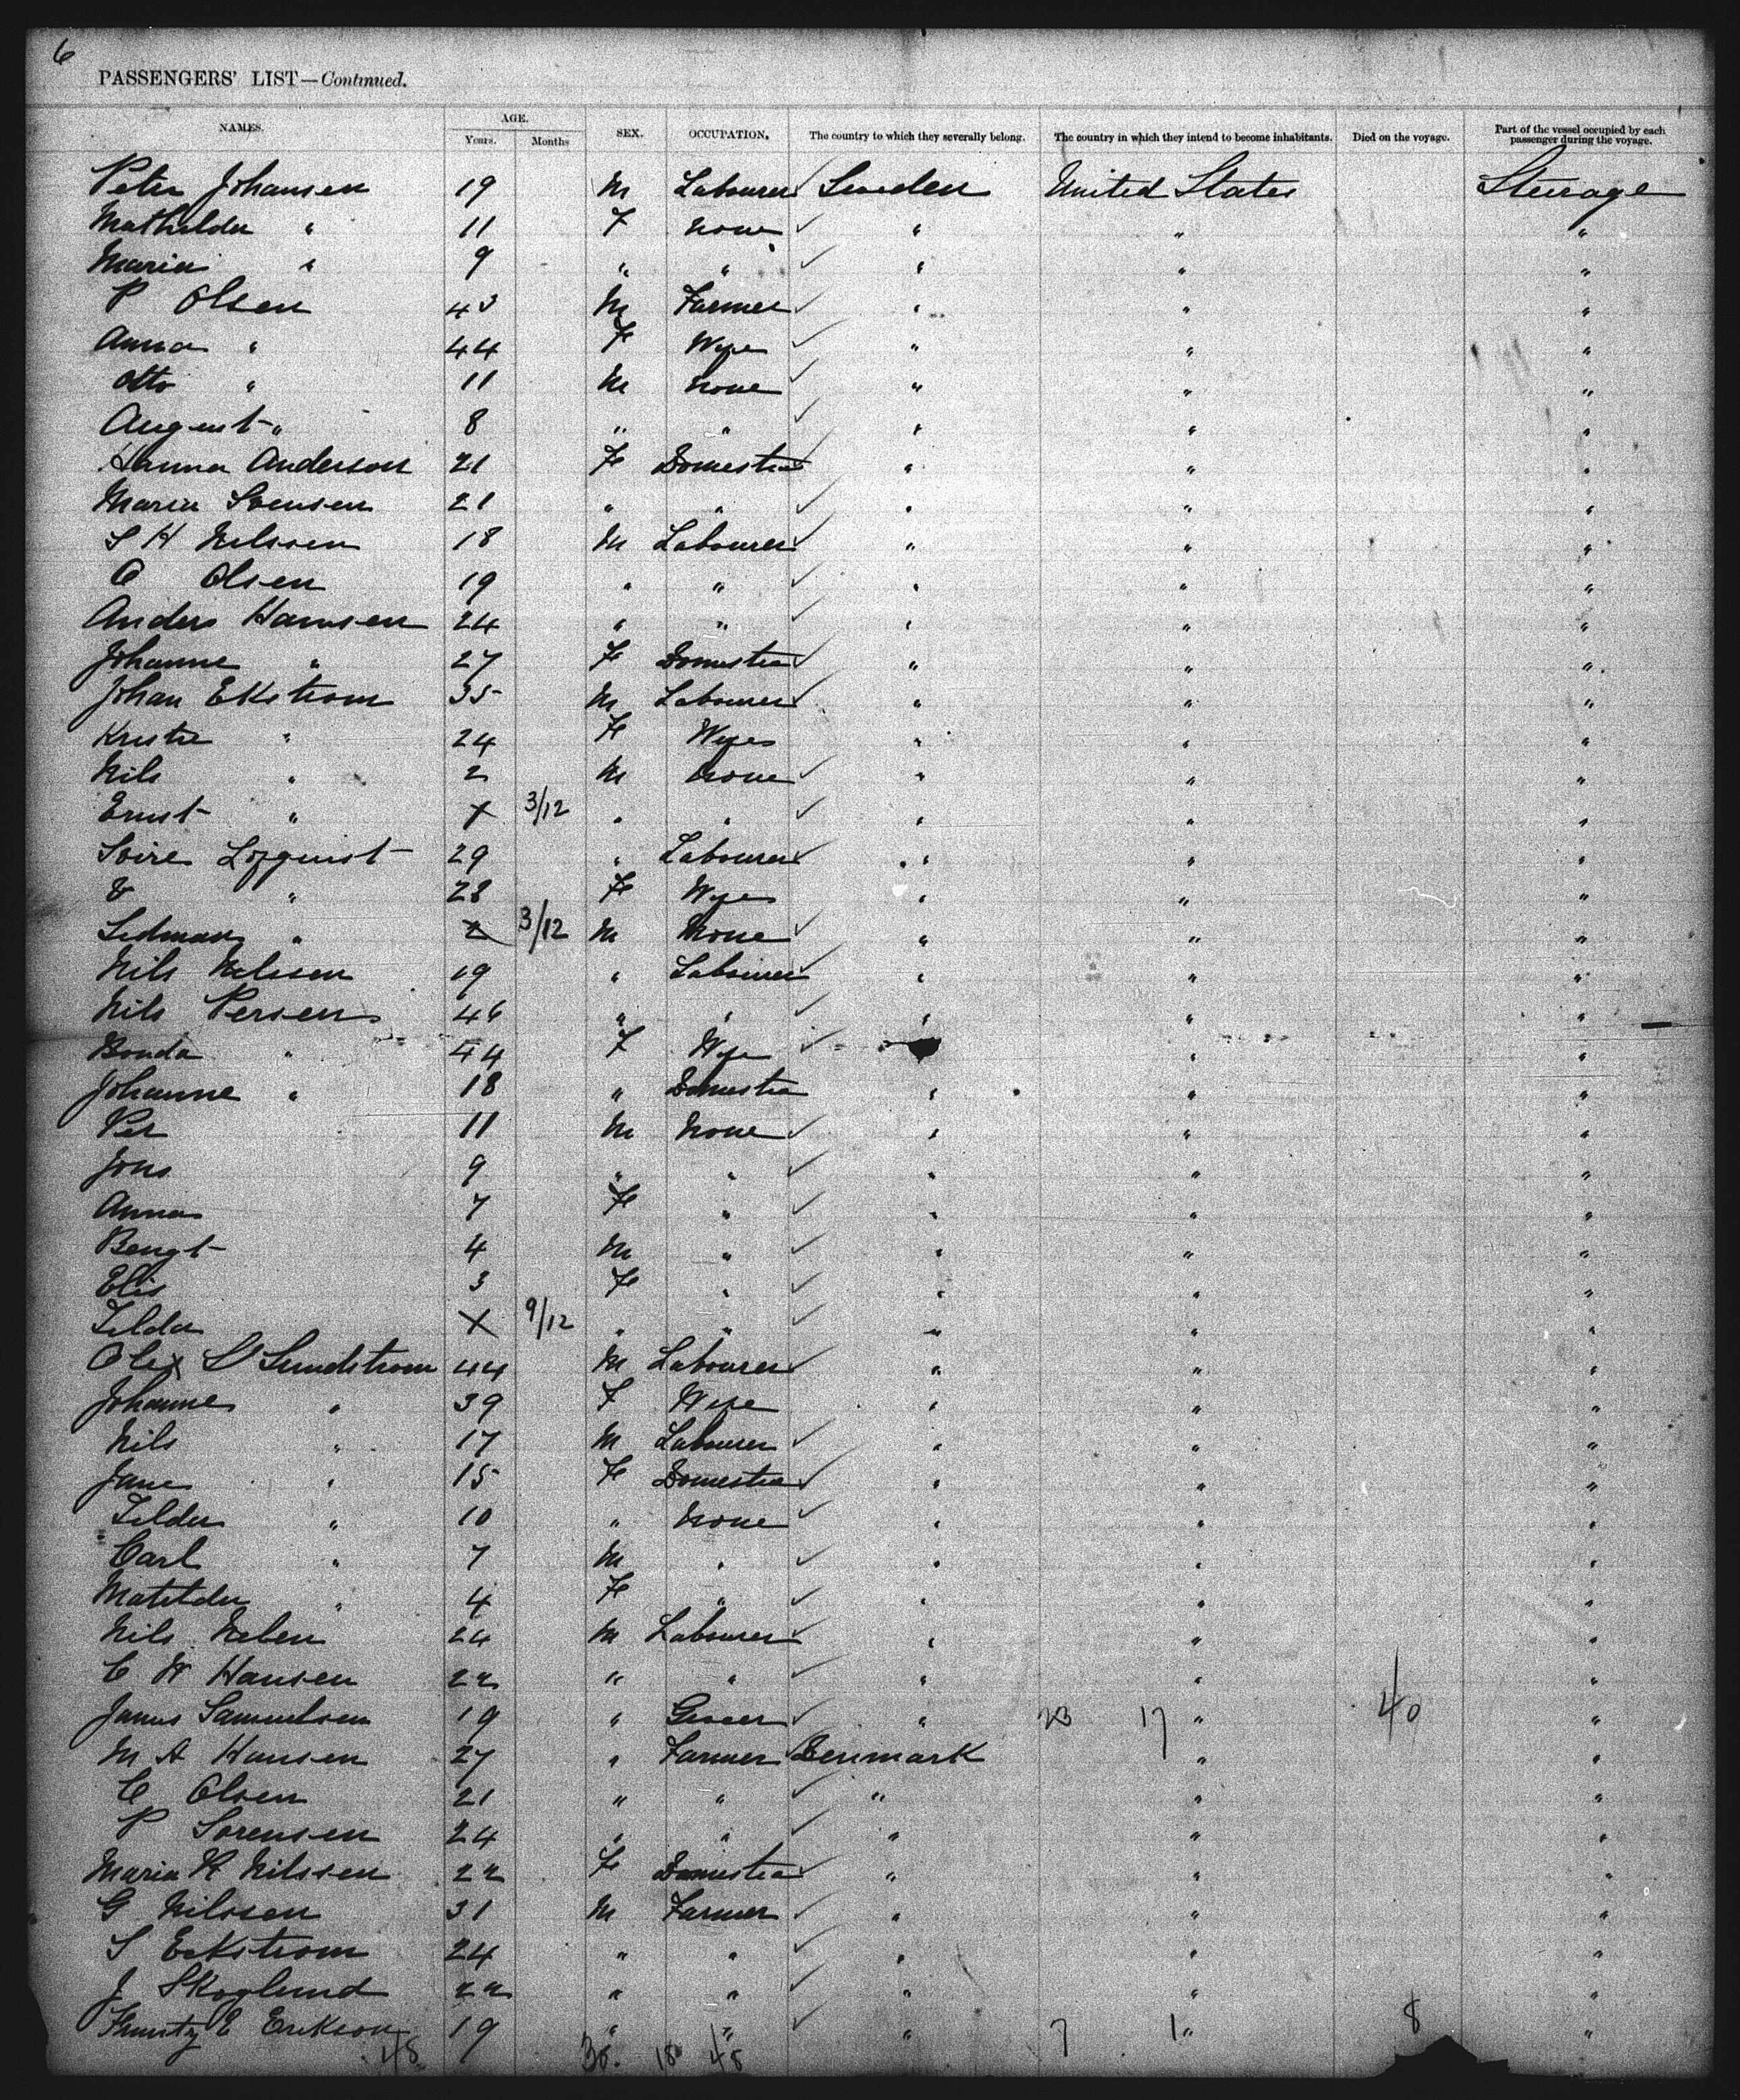 6
PASSENGERS' LIST—Continued.
NAMES. AGE. Years. Months SEX. OCCUPATION. The country to which they severally belong. The country in which they intend to become inhabitants. Died on the voyage. Part of the vessel occupied by each passenger during the voyage.
Peter Johansen 19 M Labourer Sweden United States Steerage
Mathilda " 11 F None " " "
Maria " 9 " " " " "
P Olsen 43 M Farmer " " "
Anna " 44 F Wife " " "
Otto " 11 M None " " "
August " 8 " " " " "
Hanna Anderson 21 F Domestic " " "
Maria Svensen 21 " " " " "
S H Nelssen 18 M Labourer " " "
O Olsen 19 " " " " "
Anders Hansen 24 " " " " "
Johanne " 27 F Domestic " " "
Johan Ekstrom 35 M Labourer " " "
Kristie " 24 F Wife " " "
Nils " 2 M None " " "
Ernst " 3/12 " " " " "
Lofquist 29 " Labourer " " "
" 28 F Wife " " "
" 3/12 M None " " "
Nils Nelssen 19 " Labourer " " "
Nils Persen 46 " " " " "
Bonda " 44 F Wife " " "
Johanne " 18 " Domestic " " "
Per 11 M None " " "
Jons 9 " " " " "
Anna 7 F " " " "
Bengt 4 M " " " "
Elis 3 F " " " "
Tilda 9/12 " " " " "
Sundstrom 44 M Labourer " " "
Johanne " 39 F Wife " " "
Nils " 17 M Labourer " " "
Jane " 15 F Domestic " " "
Tilda " 10 " None " " "
Carl " 7 M " " " "
Matilda " 4 F " " " "
Nils 24 M Labourer " " "
C W Hansen 22 " " " " "
James Samuelsen 19 " Grocer " 23 17 " 40 "
M A Hansen 27 " Farmer Denmark " "
C Olsen 21 " " " " "
P Sorensen 24 " " " " "
Maria K Nilssen 22 F Domestic " " "
G Nilssen 31 M Farmer " " "
S Eckstrom 24 " " " " "
J Skoglund 22 " " " " "
E Erikson 19 " " " 7 1 " 8 "
48 30 18 48